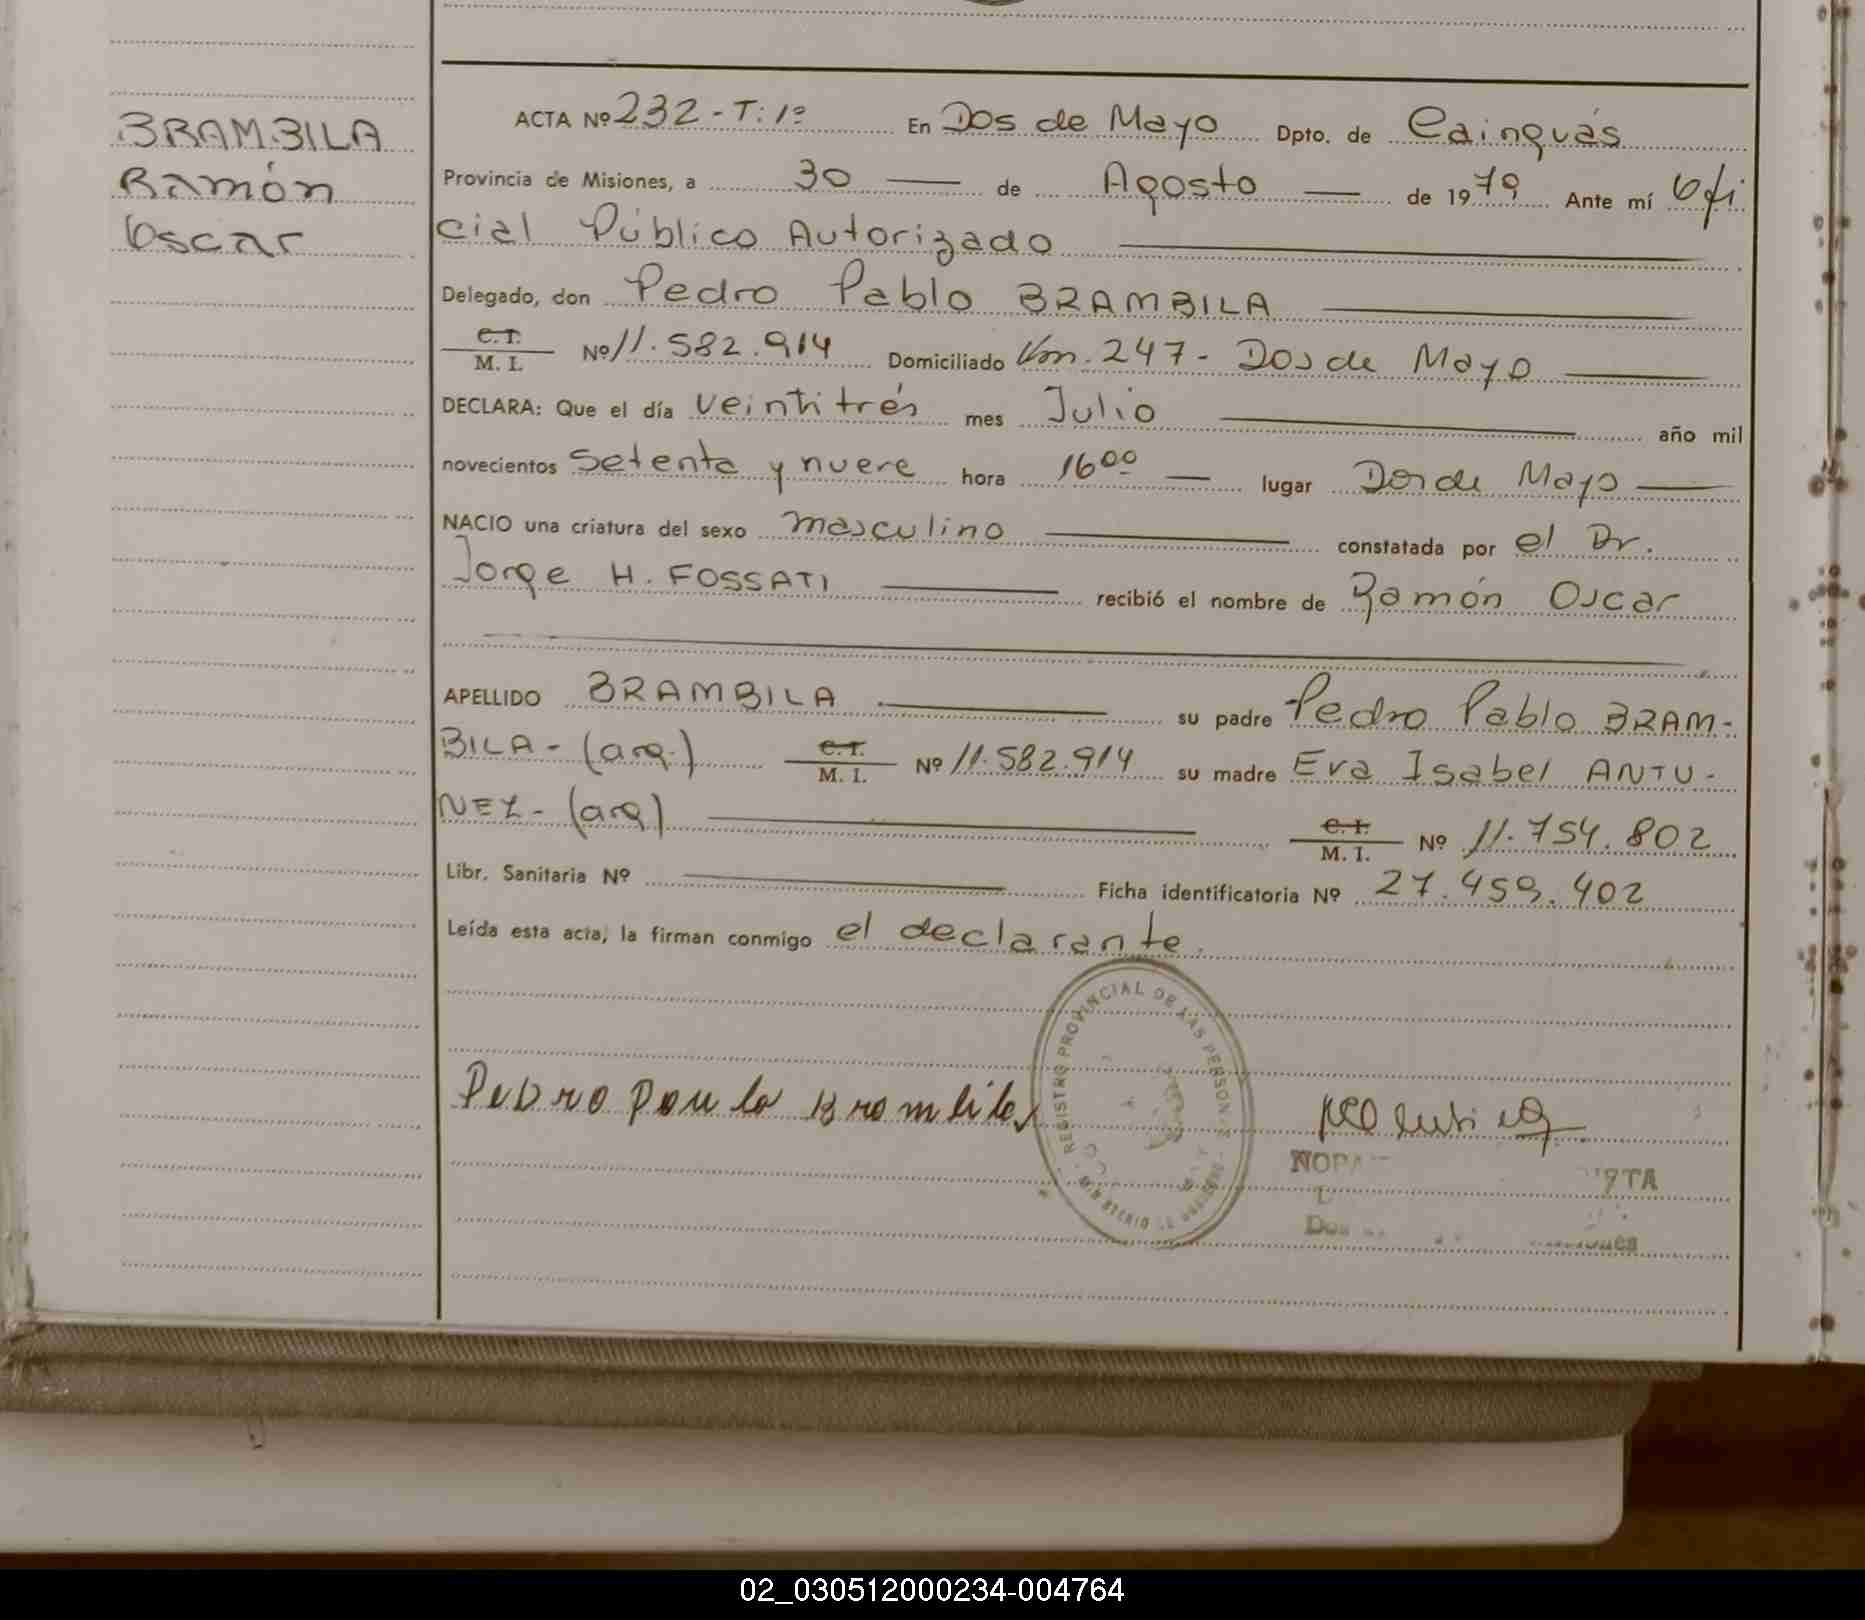 BRAMBILA
Ramón
Oscar
ACTA Nº 232 - T: 1º En Dos de Mayo Dpto. de Cainguás
Provincia de Misiones, a 30 — de Agosto — de 1979 Ante mí Ofi
cial Público Autorizado
Delegado, don Pedro Pablo BRAMBILA
C. I.
M. I. Nº 11.582.914 Domiciliado Km. 247 - Dos de Mayo
DECLARA: Que el día veintitrés mes Julio año mil
novecientos setenta y nueve hora 16 00 lugar Dos de Mayo
NACIO una criatura del sexo masculino constatada por el Dr.
Jorge H. FOSSATI recibió el nombre de Ramón Oscar
APELLIDO BRAMBILA su padre Pedro Pablo BRAM-
BILA - (arg.) C. I. M. I. Nº 11.582.914 su madre Eva Isabel ANTU-
NEZ - (arg) C. I. M. I. Nº 11.754.802
Libr. Sanitaria Nº Ficha identificatoria Nº 27.459.402
Leída esta acta, la firman conmigo el declarante.
REGISTRO PROVINCIAL DE LAS PERSONAS
Pedro Paulo Brambila
02_030512000234-004764